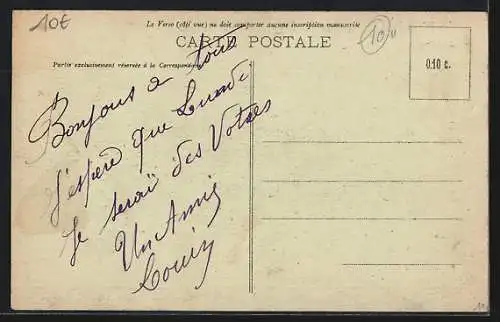 10€
Le Verso (côté vue) ne doit comporter aucune inscription manuscrite
CARTE POSTALE
10
Partie exclusivement réservée à la Correspondance
0.10 c.
Bonjour a tous
J'espere que Lundi
Je serai des Votres
Un Ami
Louis